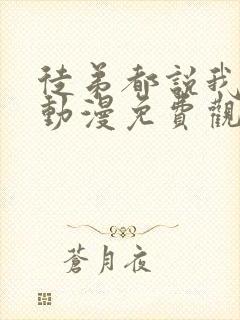 徒弟都說我
動漫免費觀
蒼月夜